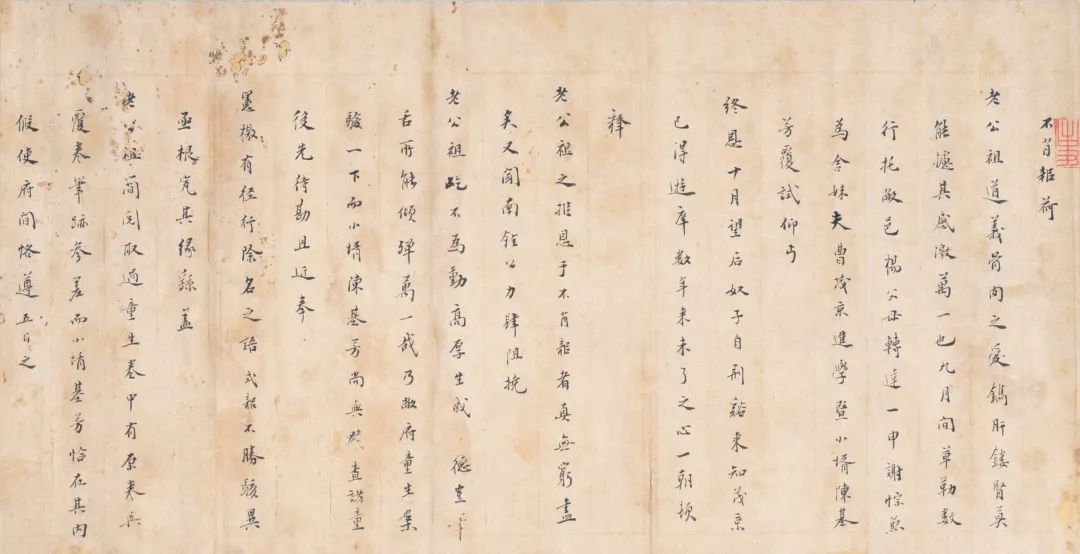 不肖韜荷
老公祖道義骨肉之愛鐫肝鏤腎莫
能攄其感激萬一也九月間草勒數
行托敝邑楊父母轉達一申謝悰兼
為舍妹夫曹茂京進學暨小壻陳基
芳覆試仰丐
終恩十月望后奴子自荊谿來知茂京
已得遊庠數年來未了之心一朝頓
釋
老公祖之推恩于不肖韜者真無窮盡
矣又聞南銓公力肆阻撓
老公祖屹不為動高厚生成德豈筆
舌所能傾殫萬一哉乃敝府童生案
駿一下而小壻陳基芳尚與發查諸童
後先待勘且近奉
憲檄有徑行除名之語式韜不勝駭異
亟根究其緣繇蓋
老公祖簡閱取過童生卷中有原卷與
覆卷筆跡參差而小壻基芳恰在其內
假使府間恪遵五日之